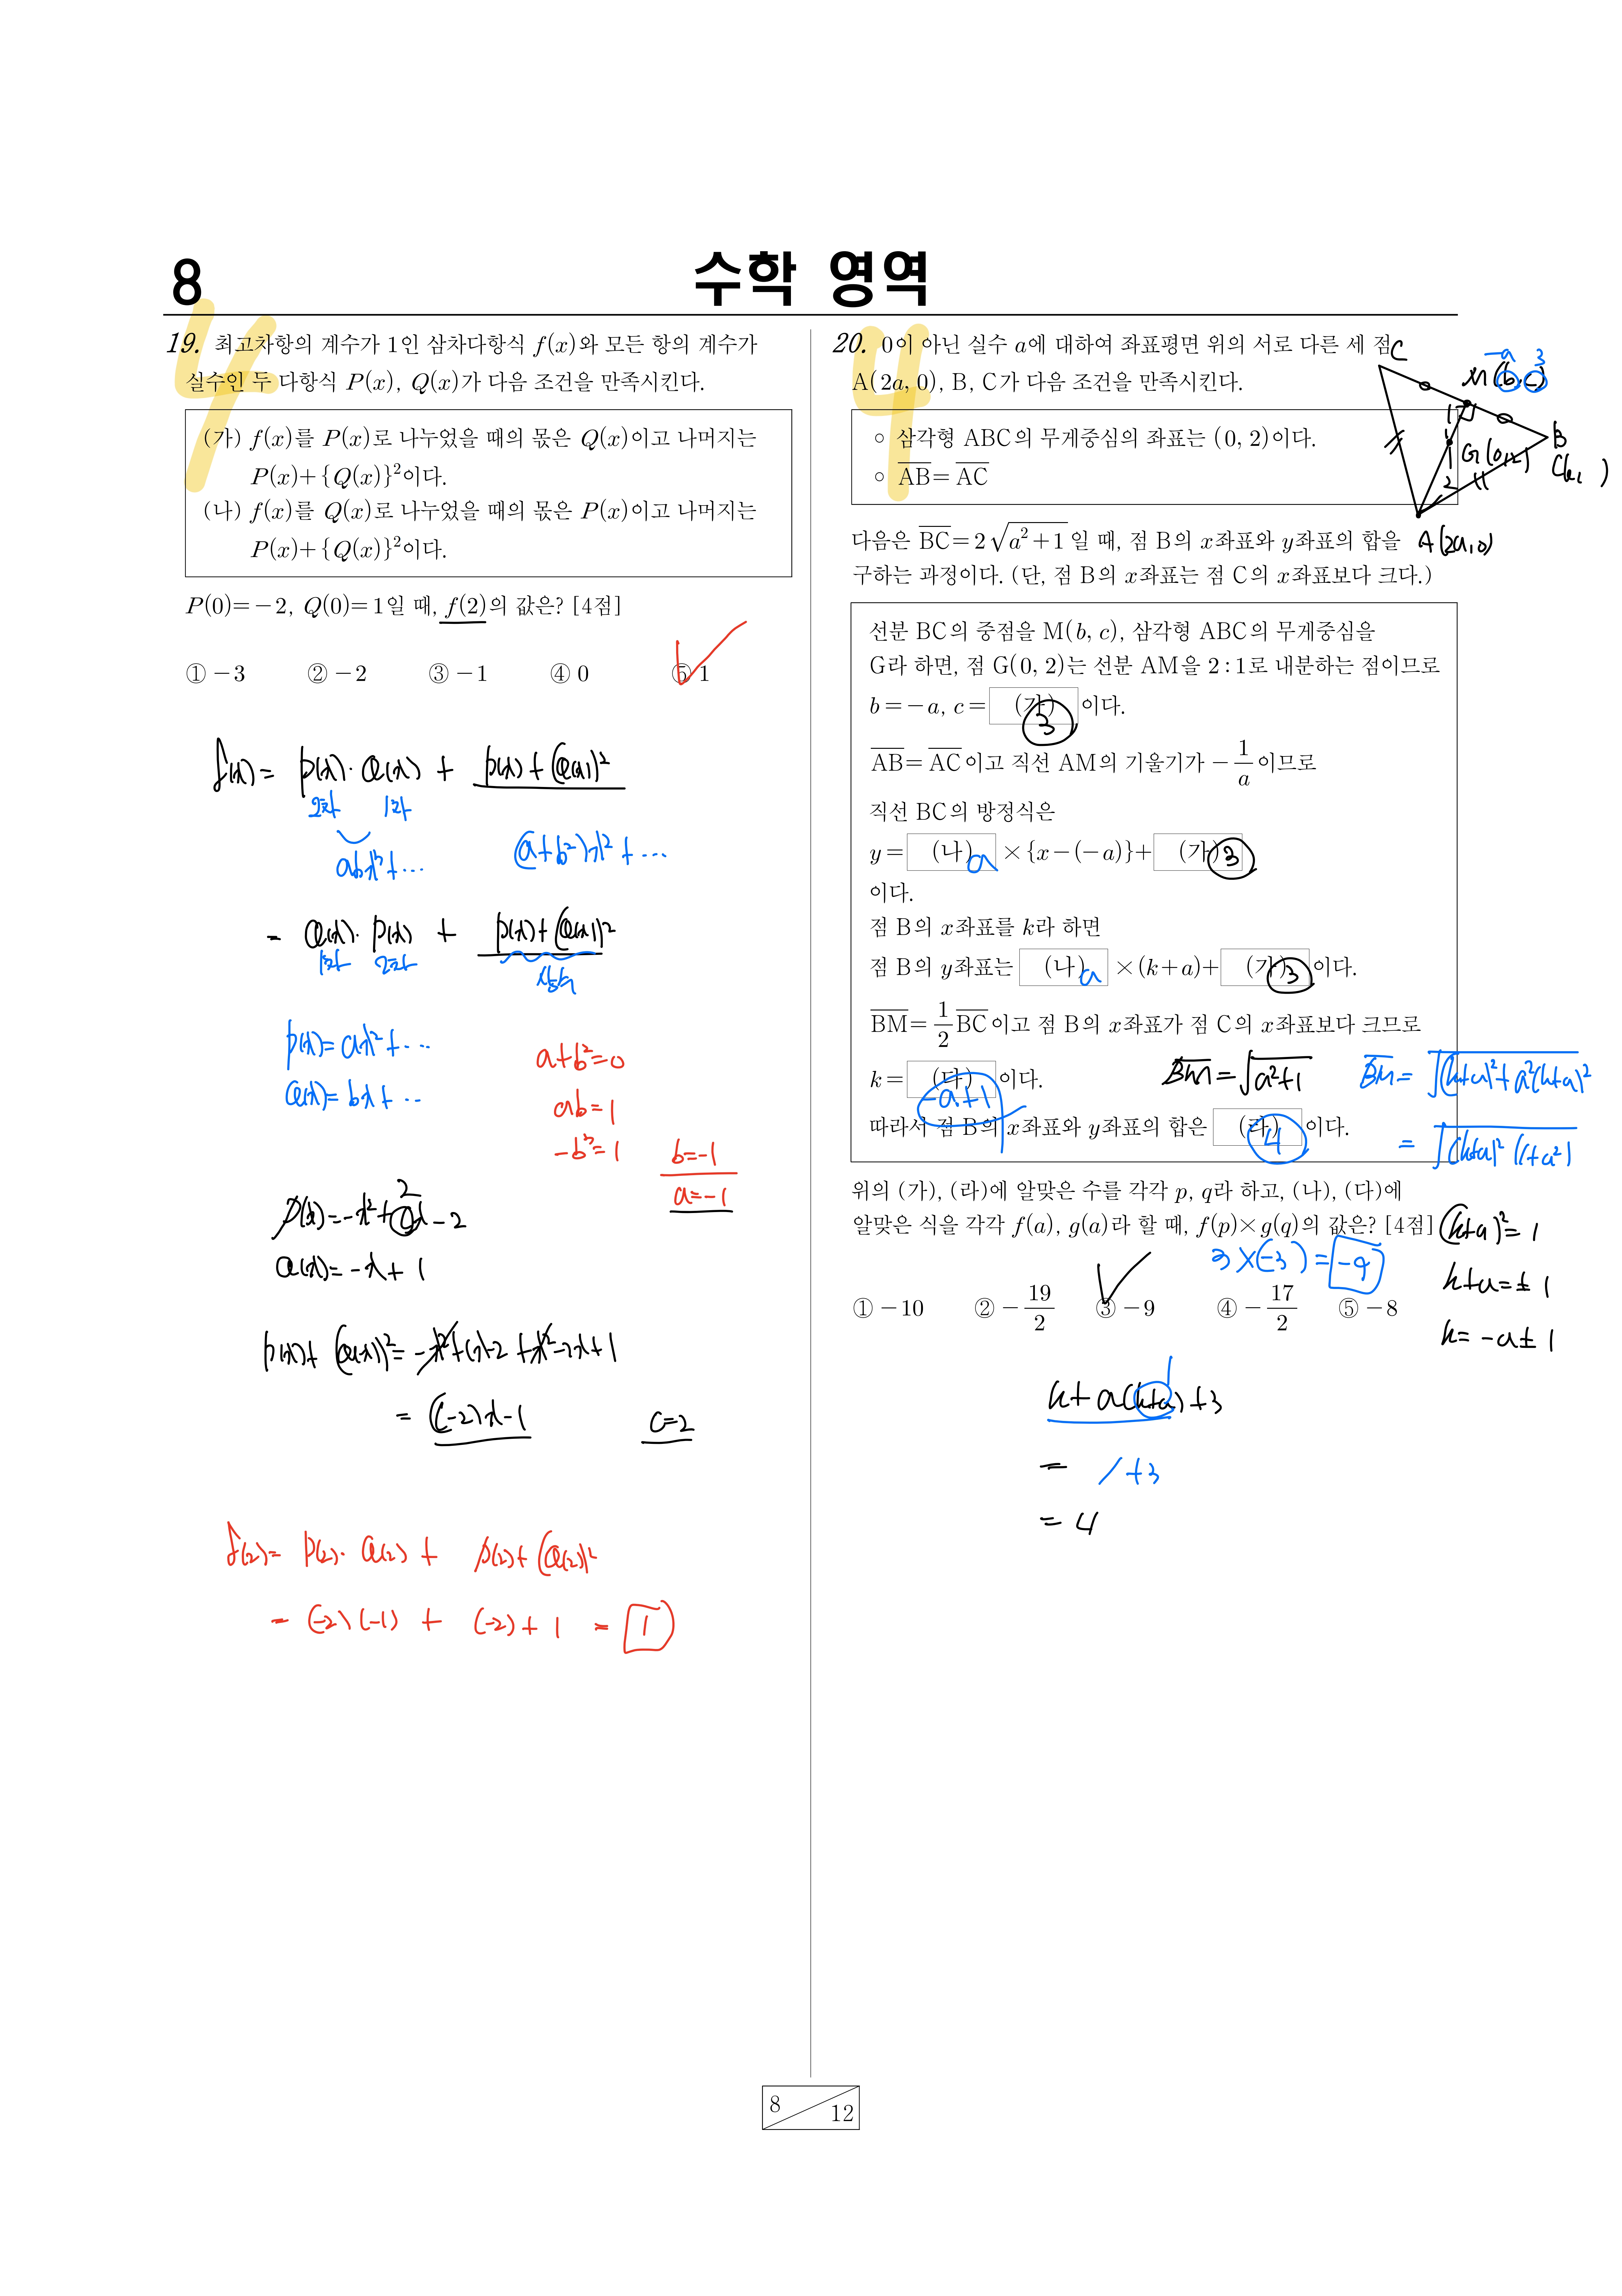 8
수학 영역
4
19. 최고차항의 계수가 1인 삼차다항식 f(x)와 모든 항의 계수가
실수인 두 다항식 P(x), Q(x)가 다음 조건을 만족시킨다.
(가) f(x)를 P(x)로 나누었을 때의 몫은 Q(x)이고 나머지는
P(x)+{Q(x)}²이다.
(나) f(x)를 Q(x)로 나누었을 때의 몫은 P(x)이고 나머지는
P(x)+{Q(x)}²이다.
P(0)=-2, Q(0)=1일 때, f(2)의 값은? [4점]
① -3 ② -2 ③ -1 ④ 0 ⑤ 1
f(x)= p(x)·Q(x) + p(x)+(Q(x))²
2차 1차
abx³+··· (a+b²)x²+···
= Q(x)·P(x) + p(x)+(Q(x))²
1차 2차 상수
p(x)=ax²+···
Q(x)=bx+··
a+b²=0
ab=1
-b³=1
b=-1
a=-1
2
p(x)=-x²+cx-2
Q(x)=-x+1
p(x)+(Q(x))²=-x²+cx-2+x²-2x+1
=(c-2)x-1
c=2
f(2)= p(2)·Q(2)+ p(2)+(Q(2))²
= (-2)(-1) + (-2)+1 = 1
4
20. 0이 아닌 실수 a에 대하여 좌표평면 위의 서로 다른 세 점
A(2a, 0), B, C가 다음 조건을 만족시킨다.
○ 삼각형 ABC의 무게중심의 좌표는 (0, 2)이다.
○ AB=AC
C
-a 3
M(b,c)
1
G(0,2)
2
B
A(2a,0)
다음은 BC=2√(a²+1)일 때, 점 B의 x좌표와 y좌표의 합을
구하는 과정이다. (단, 점 B의 x좌표는 점 C의 x좌표보다 크다.)
선분 BC의 중점을 M(b, c), 삼각형 ABC의 무게중심을
G라 하면, 점 G(0, 2)는 선분 AM을 2 : 1로 내분하는 점이므로
b=-a, c= (가) 이다.
3
AB=AC이고 직선 AM의 기울기가 -1/a이므로
직선 BC의 방정식은
y= (나) a ×{x-(-a)}+ (가) 3
이다.
점 B의 x좌표를 k라 하면
점 B의 y좌표는 (나) a ×(k+a)+ (가) 3 이다.
BM=1/2 BC이고 점 B의 x좌표가 점 C의 x좌표보다 크므로
k= (다) 이다.
-a+1
BM=√(a²+1)
BM=√((k+a)²+a²(k+a)²)
=√((k+a)²(1+a²))
따라서 점 B의 x좌표와 y좌표의 합은 (라) 이다.
4
위의 (가), (라)에 알맞은 수를 각각 p, q라 하고, (나), (다)에
알맞은 식을 각각 f(a), g(a)라 할 때, f(p)×g(q)의 값은? [4점]
3×(-3)=-9
(k+a)²=1
k+a=±1
k=-a±1
① -10 ② -19/2 ③ -9 ④ -17/2 ⑤ -8
1
k+a(k+a)+3
= 1+3
= 4
8
12